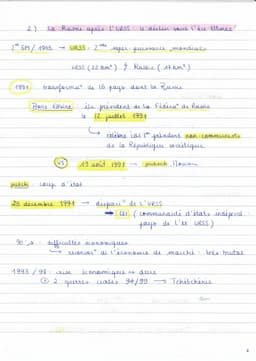 2) La Russie après l'URSS : le déclin sous l'ère Eltsine
2nde GM / 1945 → URSS : 2ème super-puissance mondiale
URSS (22 km²) Russie (17 km²)
1991 transforma° de 15 pays dont la Russie
Boris Eltsine : élu président de la Fédéra° de Russie
le 12 juillet 1991
↳ célèbre car 1er président non communiste
de la République soviétique
VS 19 août 1991 → putsch Moscou
putsch coup d'état
25 décembre 1991 → dispari° de l'URSS
→ CEI (communauté d'états indépend.
pays de l'ex URSS)
90's : difficultés économiques
↳ réserver de l'économie de marché : très brutal
1997/98 : crise économique → dure
+ 2 guerres civiles 94/99 → Tchétchénie